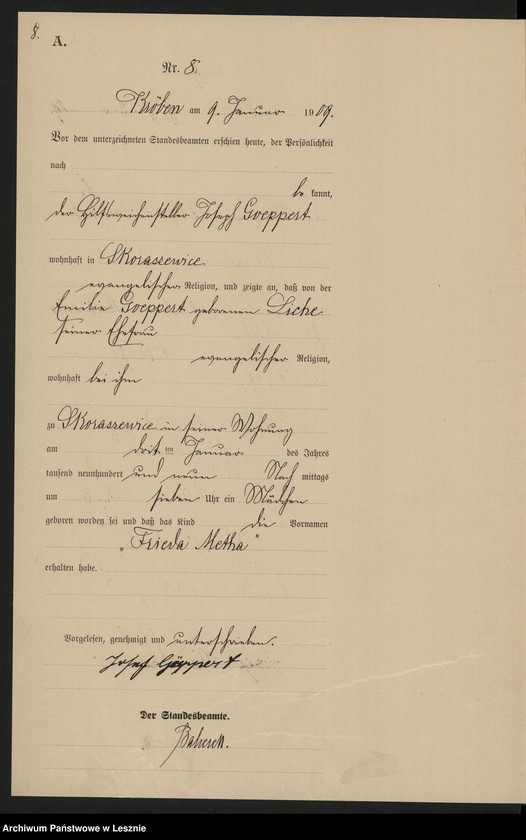 8.
A.
Nr. 8.
Kröben am 9. Januar 1909.
Vor dem unterzeichneten Standesbeamten erschien heute, der Persönlichkeit
nach
be kannt,
der Hilfsweichensteller Joseph Goeppert
wohnhaft in Skoraszewice
evangelischer Religion, und zeigte an, daß von der
Emilie Goeppert geborenen Liche
seiner Ehefrau
evangelischer Religion,
wohnhaft bei ihm
zu Skoraszewice in seiner Wohnung
am dritten Januar des Jahres
tausend neunhundert und neun Nach mittags
um sieben Uhr ein Mädchen
geboren worden sei und daß das Kind die Vornamen
"Frieda Metha"
erhalten habe.
Vorgelesen, genehmigt und unterschrieben.
Josef Göppert
Der Standesbeamte.
Archiwum Państwowe w Lesznie